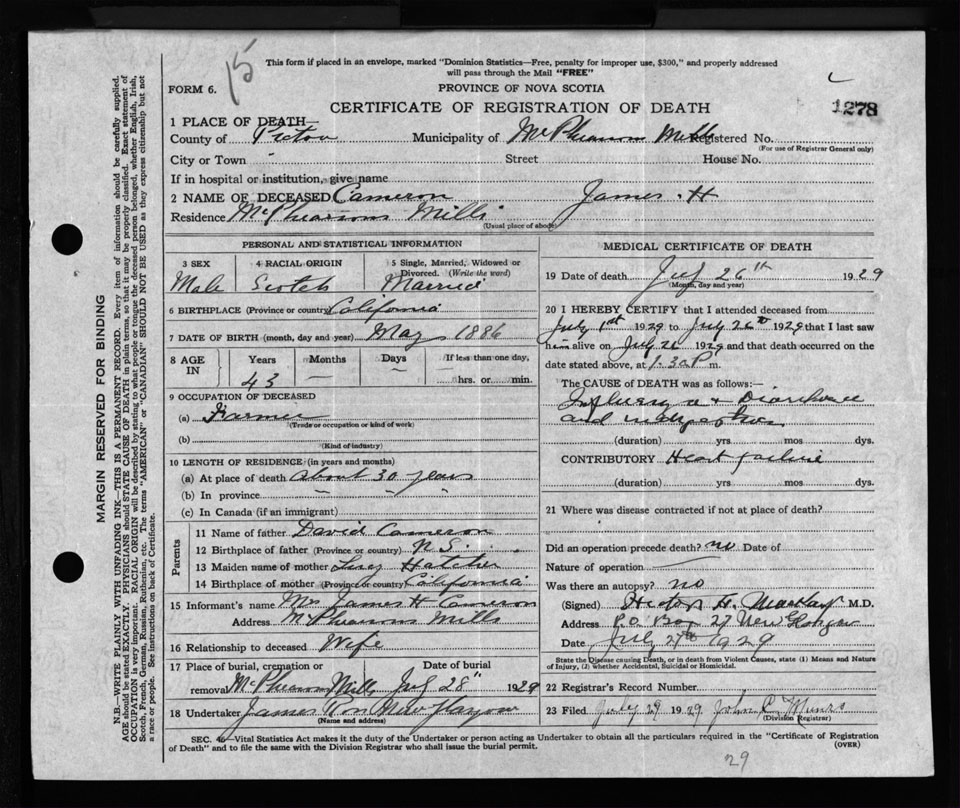 15
This form if placed in an envelope, marked "Dominion Statistics—Free, penalty for improper use, $300," and properly addressed
will pass through the Mail "FREE"
FORM 6.
PROVINCE OF NOVA SCOTIA
CERTIFICATE OF REGISTRATION OF DEATH
1278
1 PLACE OF DEATH—
County of Pictou Municipality of McPhearsons Mills Registered No.
(For use of Registrar General only)
City or Town Street House No.
If in hospital or institution, give name
2 NAME OF DECEASED Cameron James . H
Residence McPhearsons Mills
(Usual place of abode)
PERSONAL AND STATISTICAL INFORMATION
3 SEX 4 RACIAL ORIGIN 5 Single, Married, Widowed or
Divorced. (Write the word)
Male Scotch Married
6 BIRTHPLACE (Province or country) California
7 DATE OF BIRTH (month, day and year) May 1886
8 AGE IN Years Months Days If less than one day,
43 — — hrs. or min.
9 OCCUPATION OF DECEASED
(a) Farmer
(Trade or occupation or kind of work)
(b)
(Kind of industry)
10 LENGTH OF RESIDENCE (in years and months)
(a) At place of death about 30 years
(b) In province " " "
(c) In Canada (if an immigrant)
Parents
11 Name of father David Cameron
12 Birthplace of father (Province or country) N.S.
13 Maiden name of mother Lucy Hatcher
14 Birthplace of mother (Province or country) California
15 Informant's name Mrs James H Cameron
Address McPhearsons Mills
16 Relationship to deceased Wife
17 Place of burial, cremation or Date of burial
removal McPhearson Mills July 28" 1929
18 Undertaker James New Glasgow
(Name and address)
MEDICAL CERTIFICATE OF DEATH
19 Date of death July 26th 1929
(Month, day and year)
20 I HEREBY CERTIFY that I attended deceased from
July 1st 1929 to July 26th 1929 that I last saw
him alive on July 26 1929 and that death occurred on the
date stated above, at 1.30 P m.
The CAUSE of DEATH was as follows:—
Influenza + Diarrhoea
and
(duration) yrs mos dys.
CONTRIBUTORY Heart failure
(duration) yrs. mos. dys.
21 Where was disease contracted if not at place of death?
Did an operation precede death? no Date of
Nature of operation —
Was there an autopsy? no
(Signed) Hector H. Mackay M.D.
Address P.O. Box 27 New Glasgow
Date July 27th 1929
State the Disease causing Death, or in death from Violent Causes, state (1) Means and Nature
of Injury, (2) whether Accidental, Suicidal or Homicidal.
22 Registrar's Record Number
23 Filed July 29 1929 John C Munro
(Division Registrar)
SEC. 4 Vital Statistics Act makes it the duty of the Undertaker or person acting as Undertaker to obtain all the particulars required in the "Certificate of Registration
of Death" and to file the same with the Division Registrar who shall issue the burial permit. (OVER)
29
MARGIN RESERVED FOR BINDING
N.B.—WRITE PLAINLY WITH UNFADING INK—THIS IS A PERMANENT RECORD. Every item of information should be carefully supplied.
AGE should be stated EXACTLY. PHYSICIANS should STATE CAUSE OF DEATH in plain terms, so that it may be properly classified. Exact statement of
OCCUPATION is very important. RACIAL ORIGIN will be described by stating to what people or tongue the deceased person belonged, whether English, Irish,
Scotch, French, German, Russian, Ruthenian, etc. The terms "AMERICAN" or "CANADIAN" SHOULD NOT BE USED as they express citizenship but not
a race or people. See instructions on back of Certificate.